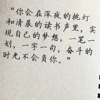 "你会在深夜的挑灯
和清晨的读书声里，实
现自己的梦想，一笔一
划，一字一句，奋斗的
时光不会负你。"